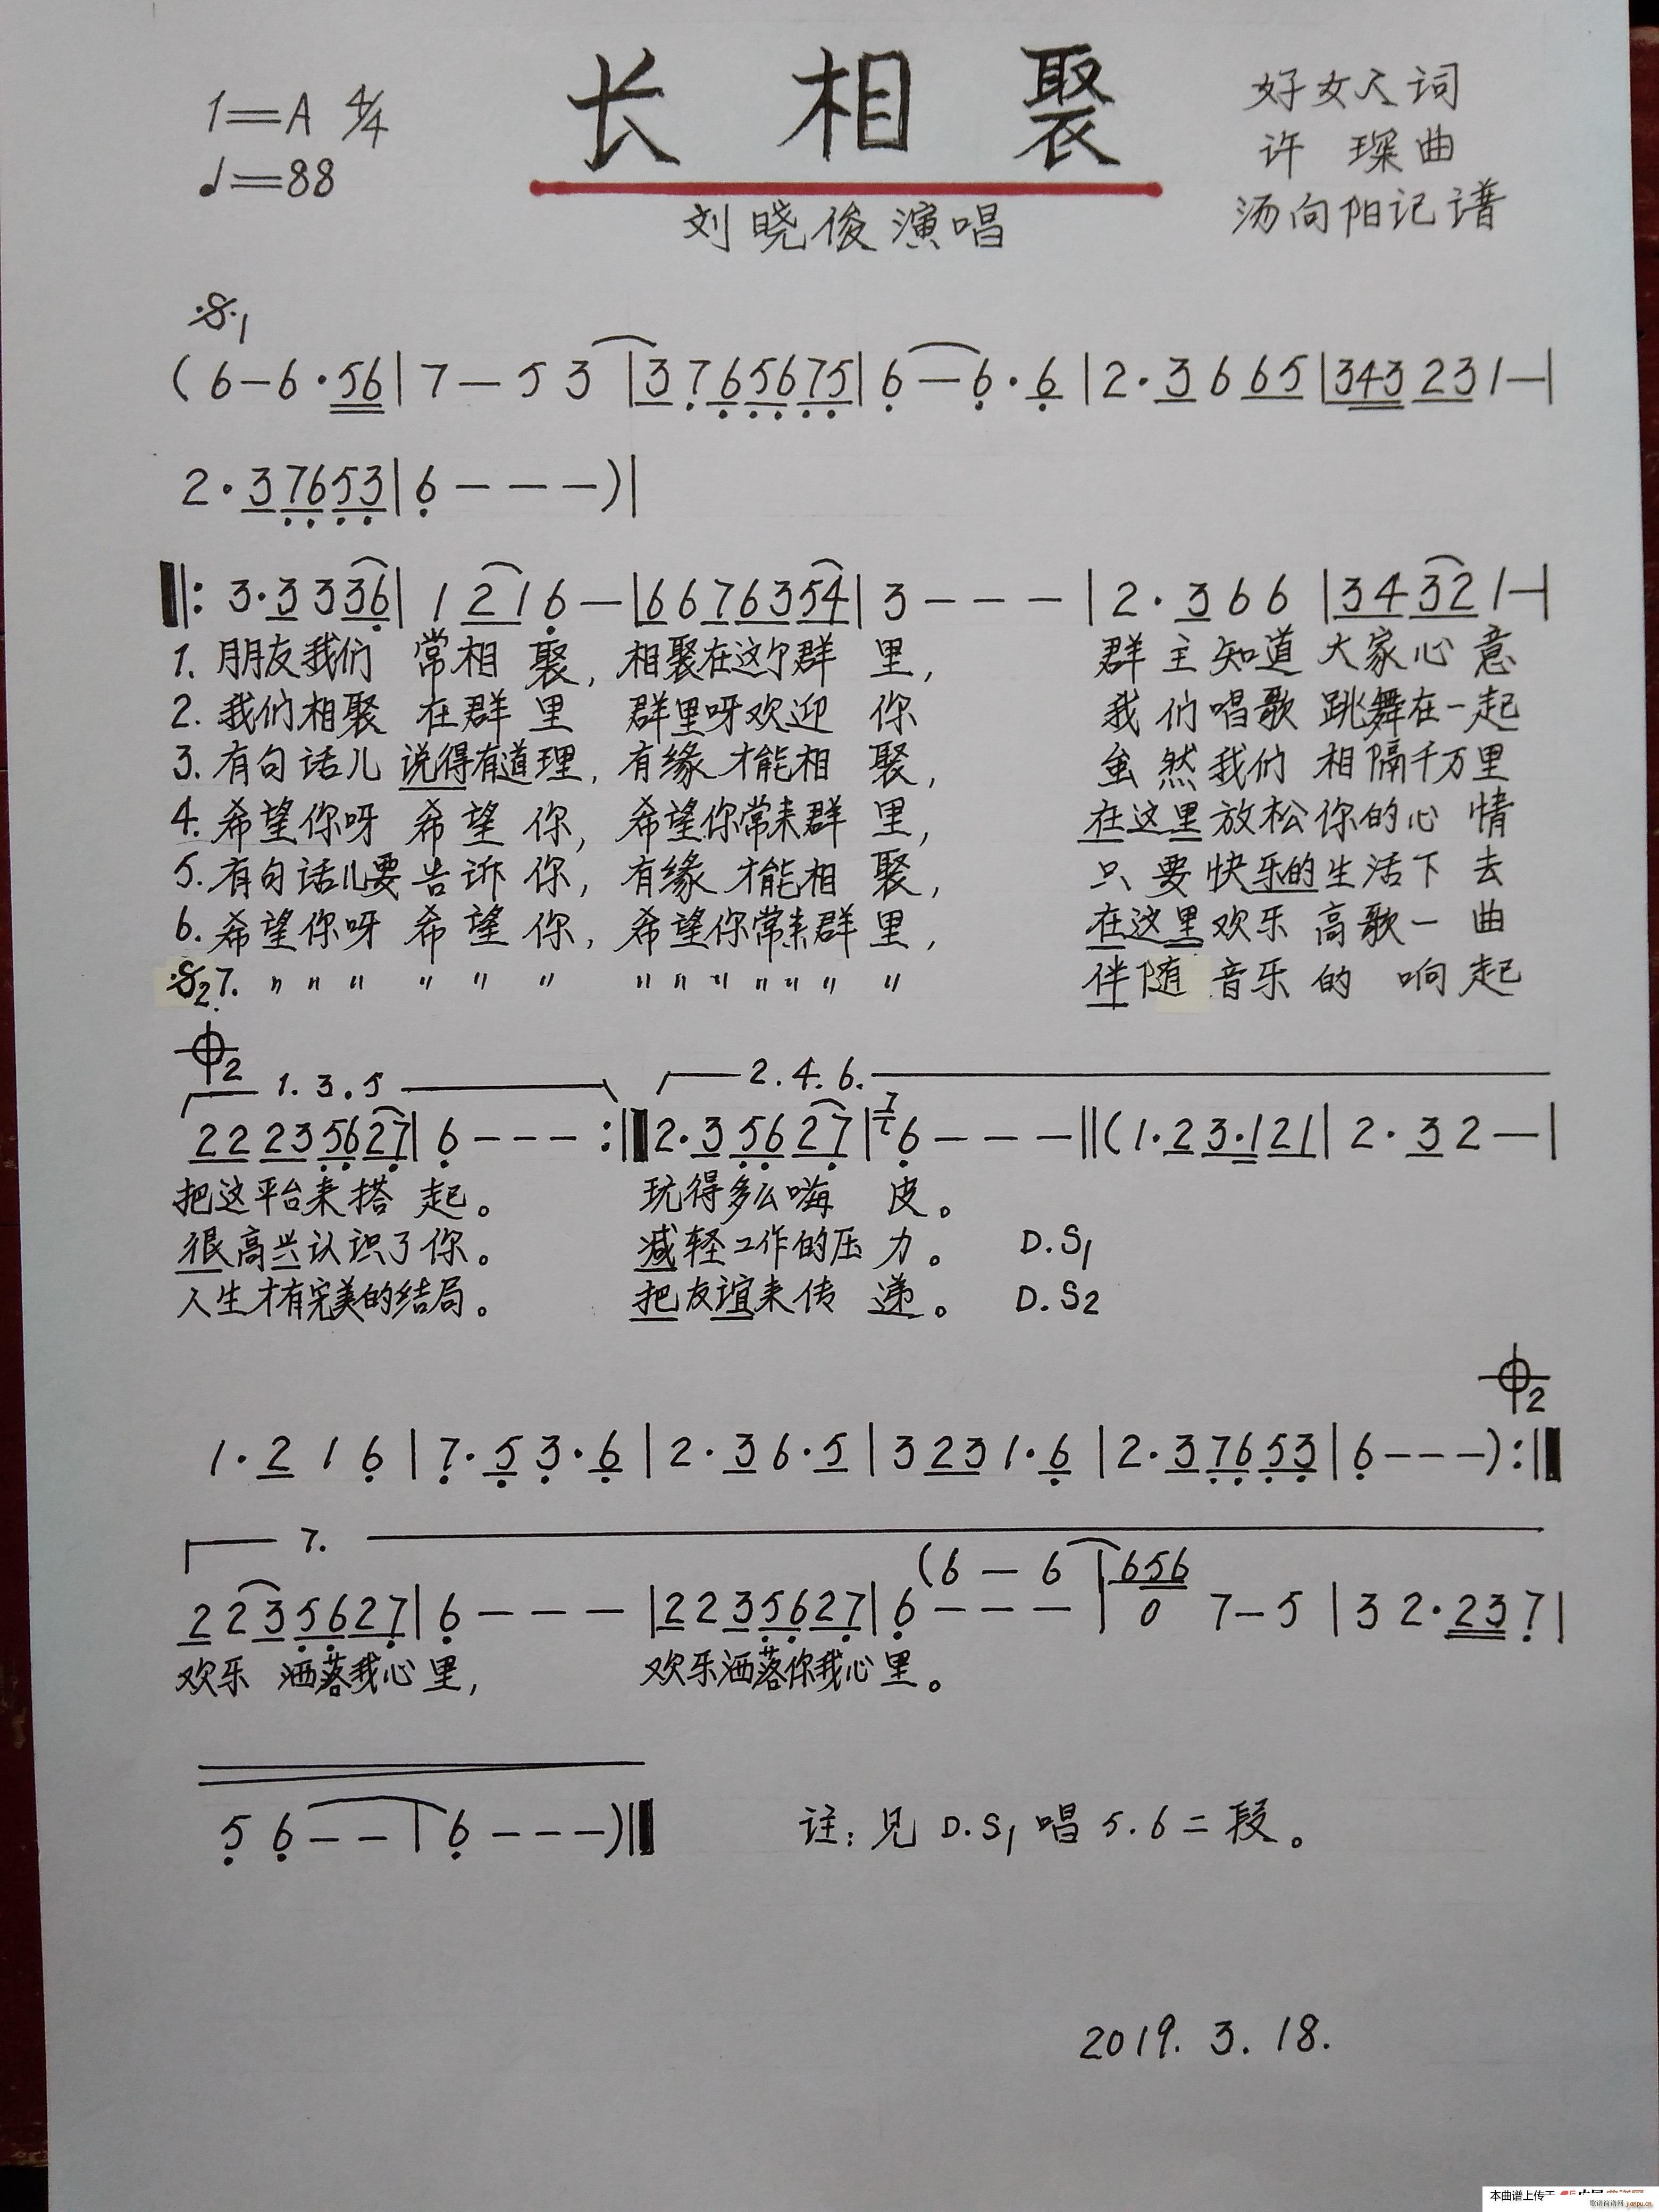 长相聚
1=A 4/4
♩=88
好女人词
许琛曲
汤向阳记谱
刘晓俊演唱
𝄋1
(6-6·56|7-53|3765675|6-6·6|2·3665|343231-|
2·37653|6---)|
‖:3·3336|1216-|6676354|3---|2·366|34321-|
1.朋友我们常相聚,相聚在这个群里,群主知道大家心意
2.我们相聚在群里群里呀欢迎你我们唱歌跳舞在一起
3.有句话儿说得有道理,有缘才能相聚,虽然我们相隔千万里
4.希望你呀希望你,希望你常来群里,在这里放松你的心情
5.有句话儿要告诉你,有缘才能相聚,只要快乐的生活下去
6.希望你呀希望你,希望你常来群里,在这里欢乐高歌一曲
𝄋2 7. 〃〃〃〃〃〃〃〃〃〃〃〃〃伴随音乐的响起
𝄌2
1.3.5 2.4.6.
22235627|6---:‖2·35627|6---‖(1·23·121|2·32-|
把这平台来搭起。玩得多么嗨皮。
很高兴认识了你。减轻工作的压力。D.S1
人生才有完美的结局。把友谊来传递。D.S2
𝄌2
1·216|7·53·6|2·36·5|3231·6|2·37653|6---):‖
7.
(6-6|656
2235627|6---|2235627|6---|07-5|32·237|
欢乐洒落我心里,欢乐洒落你我心里。
56--|6---)‖
注:见D.S1唱5.6二段。
2019.3.18.
本曲谱上传于
歌谱简谱网 jianpu.cn